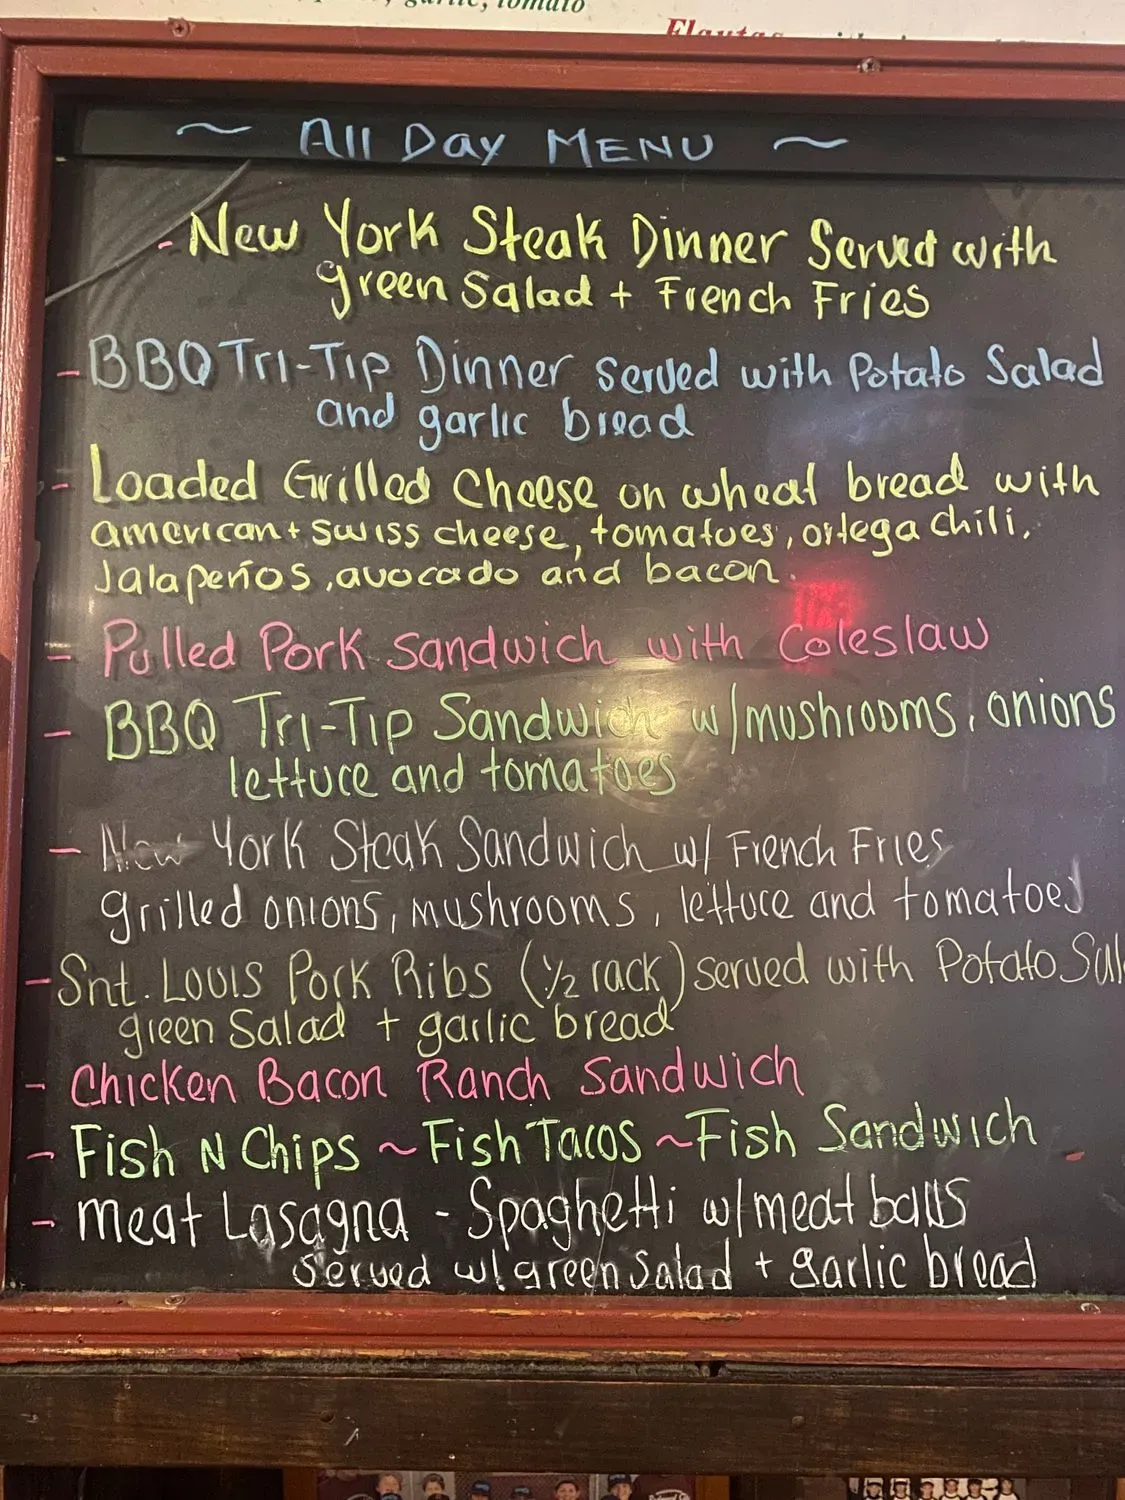 garlic, tomato
Flautas
~ All Day MENU ~
- New York Steak Dinner Served with
green Salad + French Fries
- BBQ Tri-Tip Dinner served with Potato Salad
and garlic bread
- Loaded Grilled Cheese on wheat bread with
american + swiss cheese, tomatoes, ortega chili,
Jalapeños, avocado and bacon.
- Pulled Pork Sandwich with Coleslaw
- BBQ Tri-Tip Sandwich w/mushrooms, onions
lettuce and tomatoes
- New York Steak Sandwich w/ French Fries
grilled onions, mushrooms, lettuce and tomatoes
- Snt. Louis Pork Ribs (1/2 rack) served with Potato Sal
green Salad + garlic bread
- Chicken Bacon Ranch Sandwich
- Fish N Chips ~ Fish Tacos ~ Fish Sandwich
- Meat Lasagna - Spaghetti w/meat balls
Served w/ green Salad + garlic bread